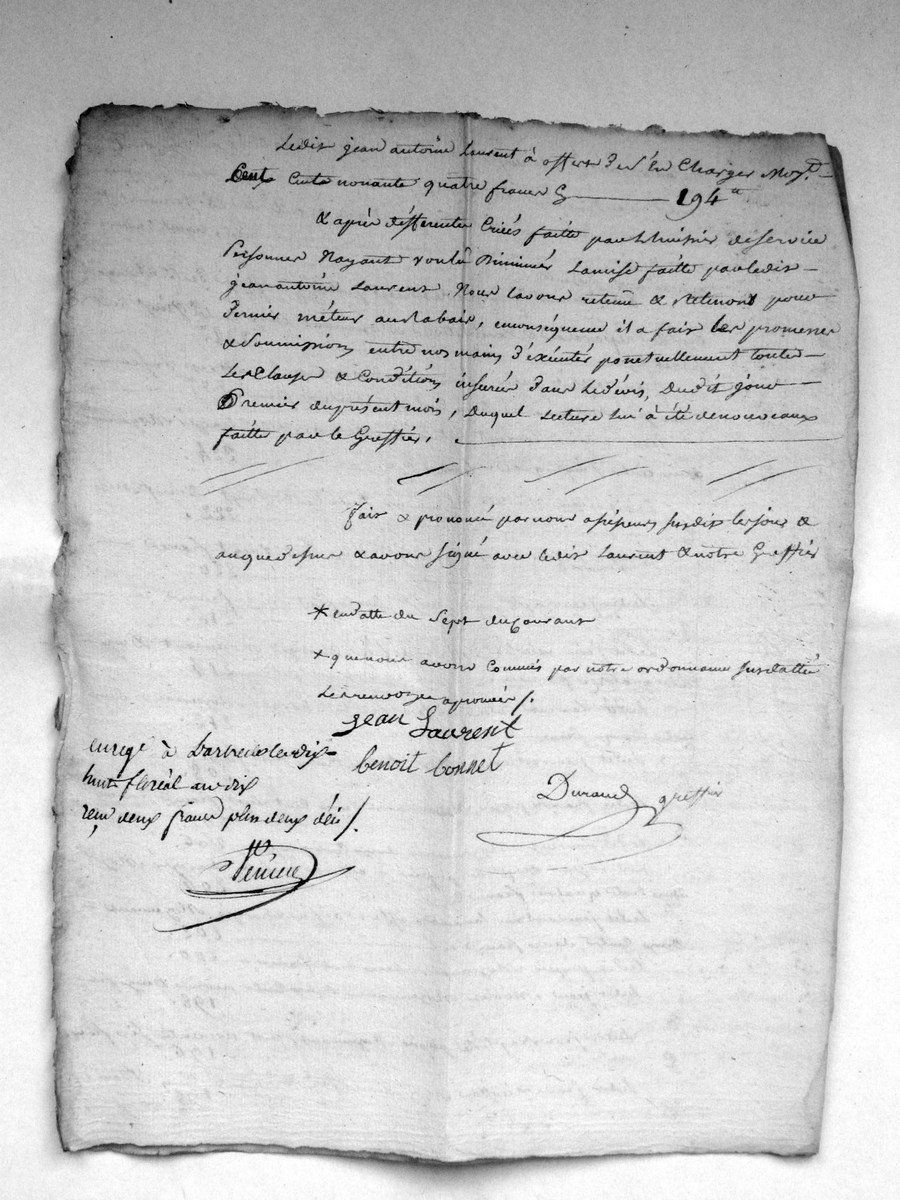 Ledit jean antoine Laurent à offert de s'en Charger Moy.t
Cent cent nonante quatre francs 194 "
& après differente Criés faitte par Lhuissier de service
Personner Nayant voulû Diminuér Lamise faitte par ledit
jean antoine Laurent Nous lavons retenû & retenons pour
Dernier métteur au Rabais, enconséquence il a fait les promesse
& Soummissions entre nos mains d'éxécuter ponctuellement toute
Les Clauses & Conditions inserée dans Ledévis, Dudit jour
Premier duprésent mois, Duquel Lecture lui à été denouveaux
faitte par le Greffiér.
Fait & prononcé par nous assesseur susdit les jour &
an que dessus & avons signé avec ledit Laurent & notre Greffiér
* en datte du Sept du Courant
* que nous avons Commis par notre ordonnance susdattée
Les renvois approuvés /.
jean Laurent
benoit bonnet
enregé à Larbrele le dix
huit floréal an dix
reçu deux francs plus deux déci /.
Durand greffier